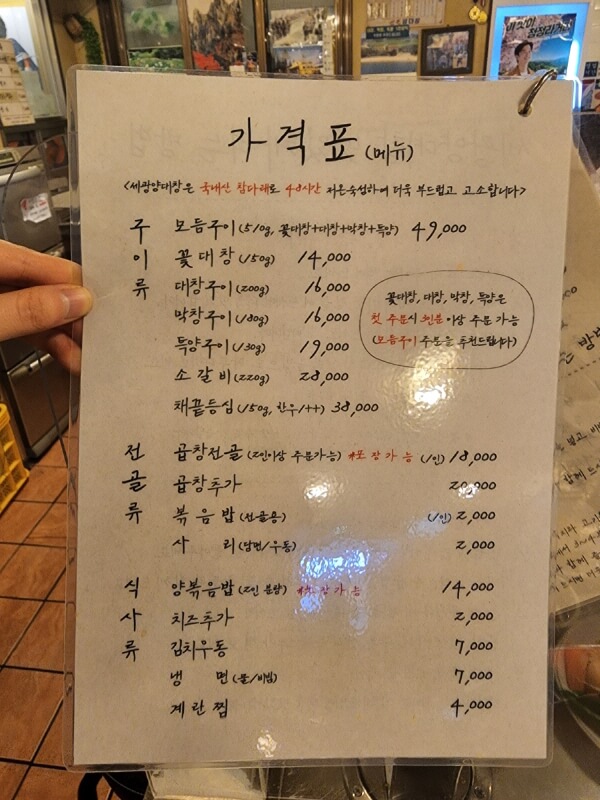 가격표 (메뉴)
<세광양대창은 국내산 참다래로 48시간 저온숙성하여 더욱 부드럽고 고소합니다>
구이류
모듬구이 (510g, 꽃대창+대창+막창+특양) 49,000
꽃대창 (150g) 14,000
대창구이 (200g) 16,000
막창구이 (180g) 16,000
특양구이 (130g) 19,000
소갈비 (220g) 28,000
채끝등심 (150g, 한우/++) 38,000
꽃대창, 대창, 막창, 특양은
첫 주문시 3인분 이상 주문 가능
(모듬구이 주문을 추천드립니다)
전골류
곱창전골 (2인이상 주문가능) *포장가능 (/1인) 18,000
곱창추가 20,000
볶음밥 (전골용) (/1인) 2,000
사리 (당면/우동) 2,000
식사류
양볶음밥 (2인 분량) *포장가능 14,000
치즈추가 2,000
김치우동 7,000
냉면 (물/비빔) 7,000
계란찜 4,000